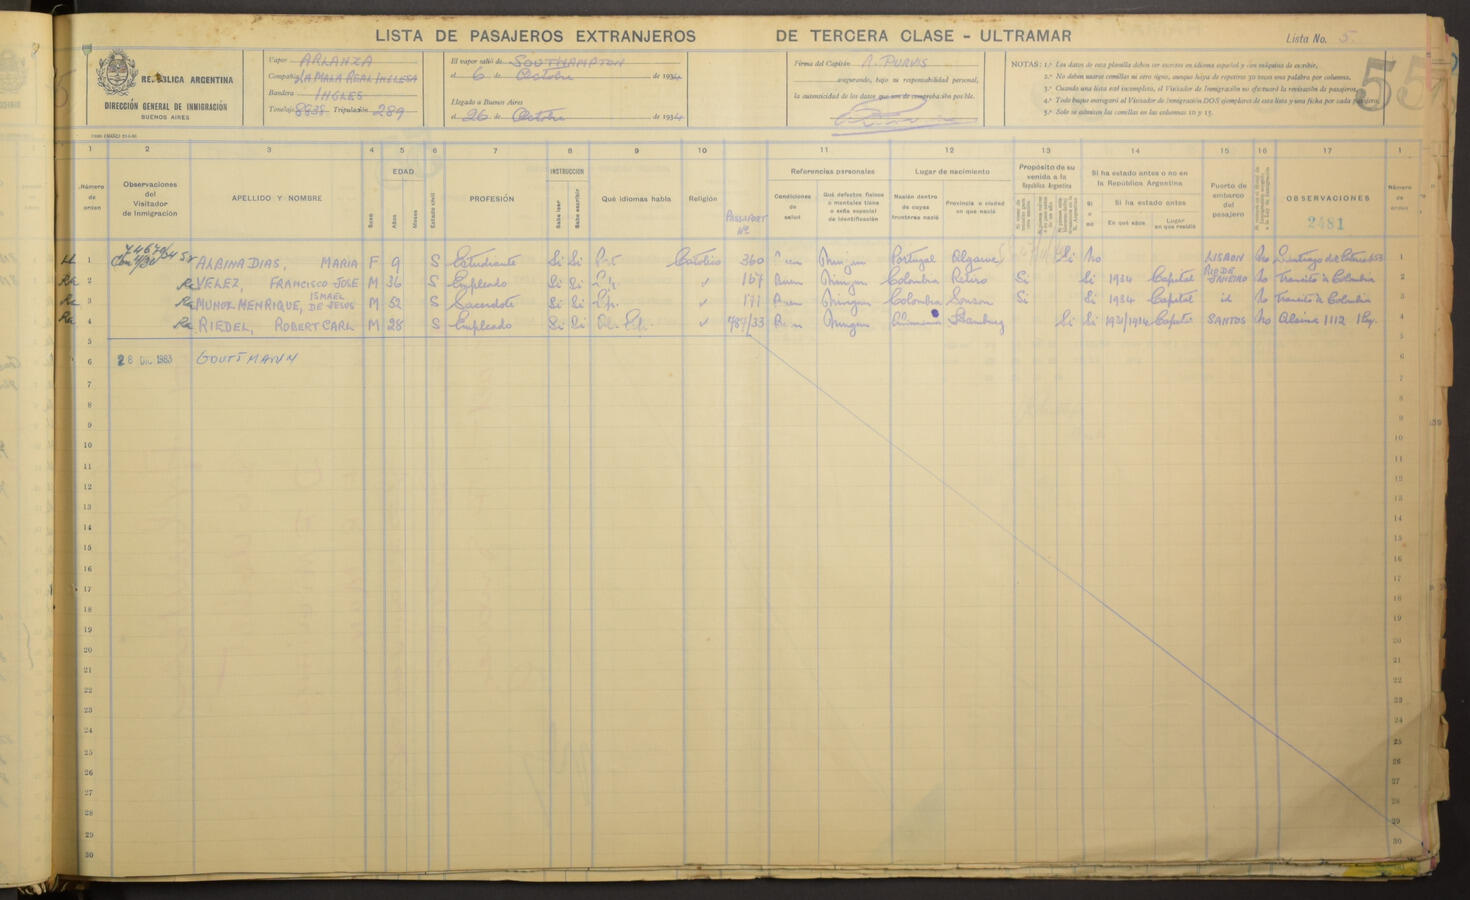 LISTA DE PASAJEROS EXTRANJEROS DE TERCERA CLASE - ULTRAMAR
Lista No. 5
REPÚBLICA ARGENTINA
DIRECCIÓN GENERAL DE INMIGRACIÓN
BUENOS AIRES
Vapor ARLANZA
Compañía LA MALA REAL INGLESA
Bandera INGLES
Tonelaje 8838 Tripulación 289
El vapor salió de SOUTHAMPTON
el 6 de Octubre de 1934
Llegado a Buenos Aires
el 26 de Octubre de 1934
Firma del Capitán A. PURVIS
asegurando, bajo su responsabilidad personal,
la autenticidad de los datos que son de comprobación posible.
NOTAS: 1.ª Los datos de esta planilla deben ser escritos en idioma español y con máquina de escribir.
2.ª No deben usarse comillas ni otro signo, aunque haya de repetirse 30 veces una palabra por columna.
3.ª Cuando una lista esté incompleta, el Visitador de Inmigración no efectuará la revisación de pasajeros.
4.ª Todo buque entregará al Visitador de Inmigración DOS ejemplares de esta lista y una ficha por cada pasajero.
5.ª Solo se admiten las comillas en las columnas 10 y 15.
55
1 2 3 4 5 6 7 8 9 10 11 12 13 14 15 16 17 1
Número de orden
Observaciones del Visitador de Inmigración
APELLIDO Y NOMBRE
Sexo
EDAD
Años
Meses
Estado civil
PROFESIÓN
INSTRUCCION
Sabe leer
Sabe escribir
Qué idiomas habla
Religión
PASSPORT No
Referencias personales
Condiciones de salud
Qué defectos físicos o mentales tiene o seña especial de identificación
Lugar de nacimiento
Nación dentro de cuyas fronteras nació
Provincia o ciudad en que nació
Propósito de su venida a la República Argentina
Si ha estado antes o no en la República Argentina
Si o no
Si ha estado antes
En qué años
Lugar en que residió
Puerto de embarco del pasajero
OBSERVACIONES
2481
Número de orden
1 ALBINA DIAS, MARIA F 9 S Estudiante Si Si Católico 360 Ningun Portugal Algarve Si No LISBON No 1
2 VELEZ, FRANCISCO JOSE M 36 S Empleado Si Si 167 Buen Ningun Colombia Retiro Si Si 1934 Capital RIO DE JANEIRO No Transito a Colombia 2
3 MUÑOZ MENRIQUE, ISMAEL DE JESUS M 52 S Sacerdote Si Si 171 Buen Ningun Colombia Sonson Si Si 1934 Capital id No Transito a Colombia 3
4 RIEDEL, ROBERT CARL M 28 S Empleado Si Si 787/33 Ningun Alemania Hamburg Si Si 1931/1934 Capital SANTOS No Alsina 1112 4
5 5
6 28 DIC 1983 GOUTSMANN 6
7 7
8 8
9 9
10 10
11 11
12 12
13 13
14 14
15 15
16 16
17 17
18 18
19 19
20 20
21 21
22 22
23 23
24 24
25 25
26 26
27 27
28 28
29 29
30 30